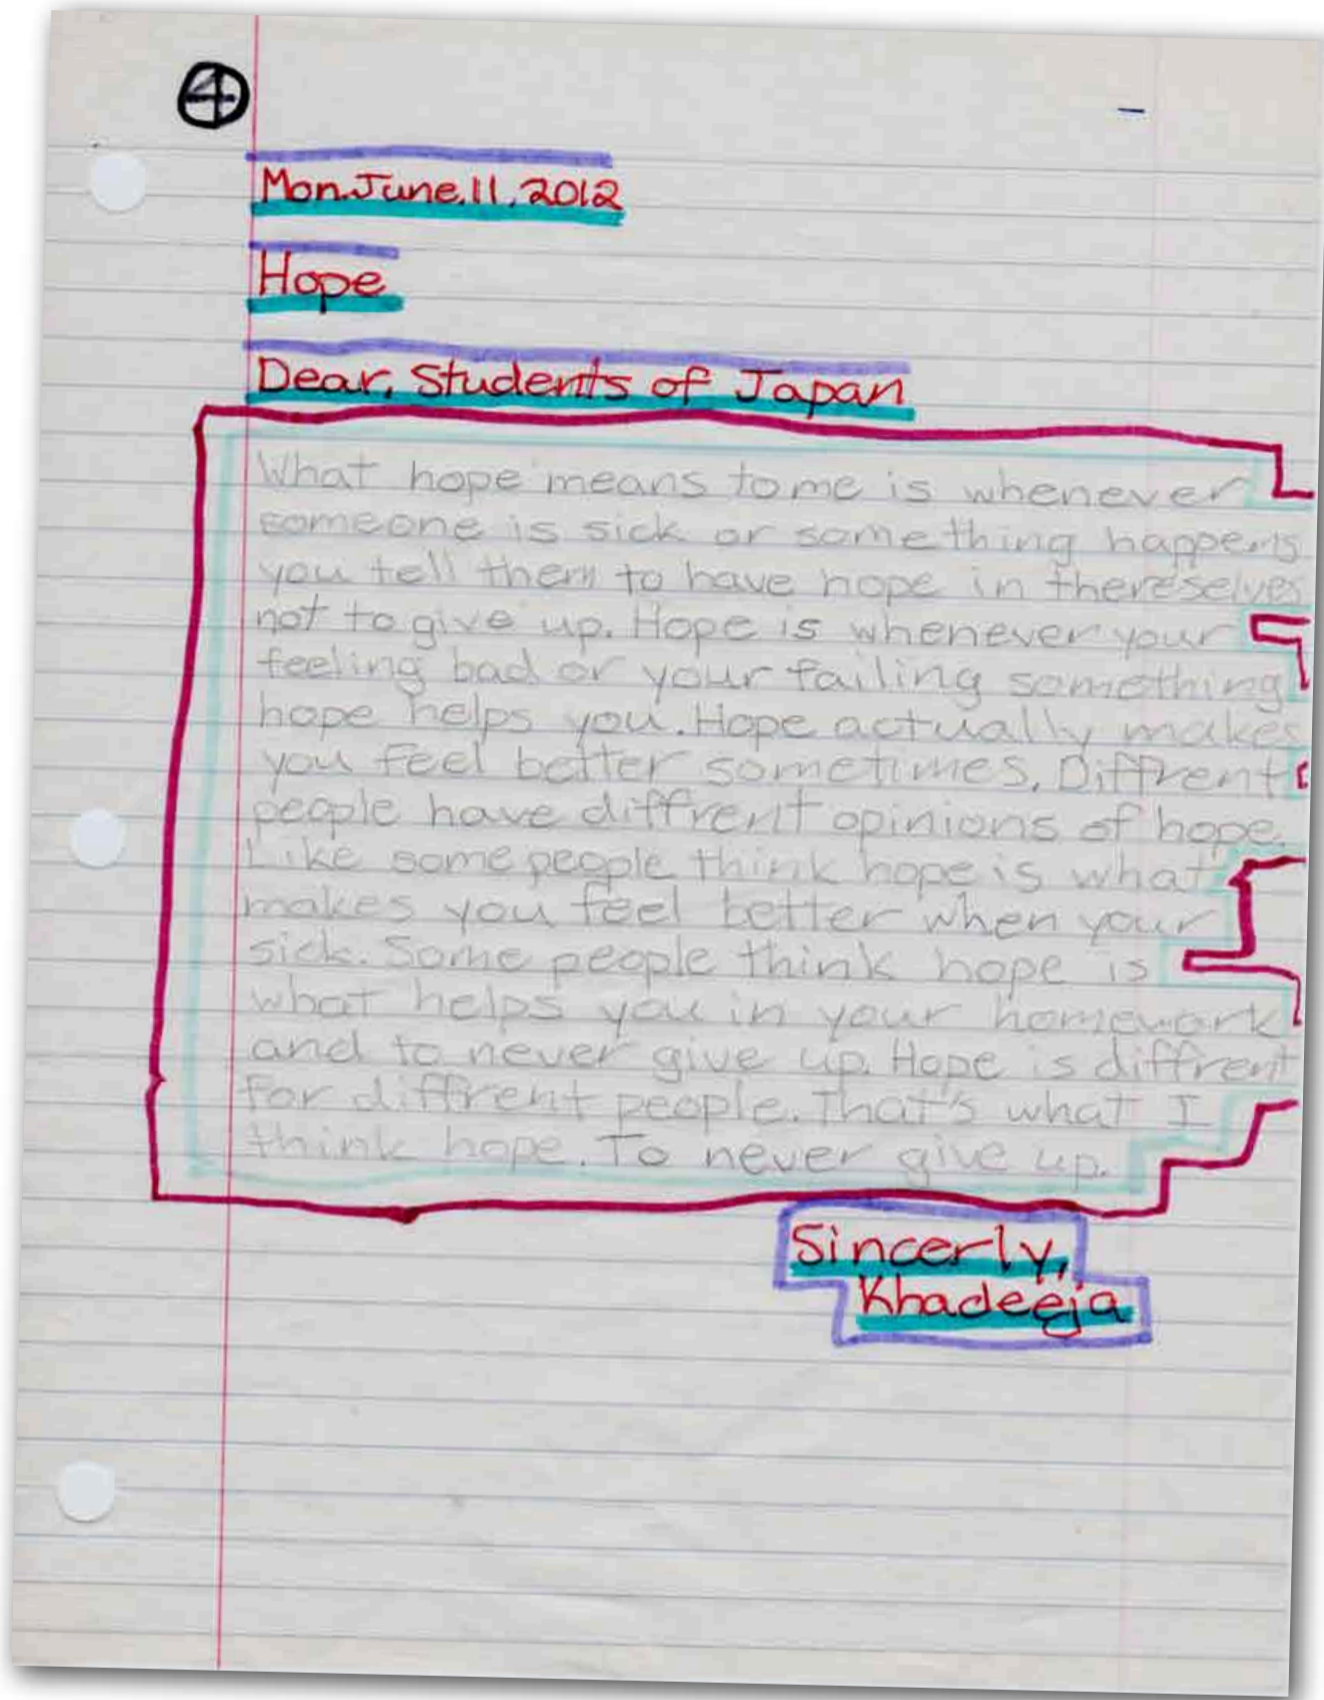 4
Mon. June. 11. 2012
Hope
Dear, Students of Japan
What hope means to me is whenever
someone is sick or something happens
you tell them to have hope in thereselves
not to give up. Hope is whenever your
feeling bad or your failing something
hope helps you. Hope actually makes
you feel better sometimes. Diffrent
people have diffrent opinions of hope.
Like some people think hope is what
makes you feel better when your
sick. Some people think hope is
what helps you in your homework
and to never give up. Hope is diffrent
for diffrent people. That's what I
think hope. To never give up.
Sincerly,
Khadeeja